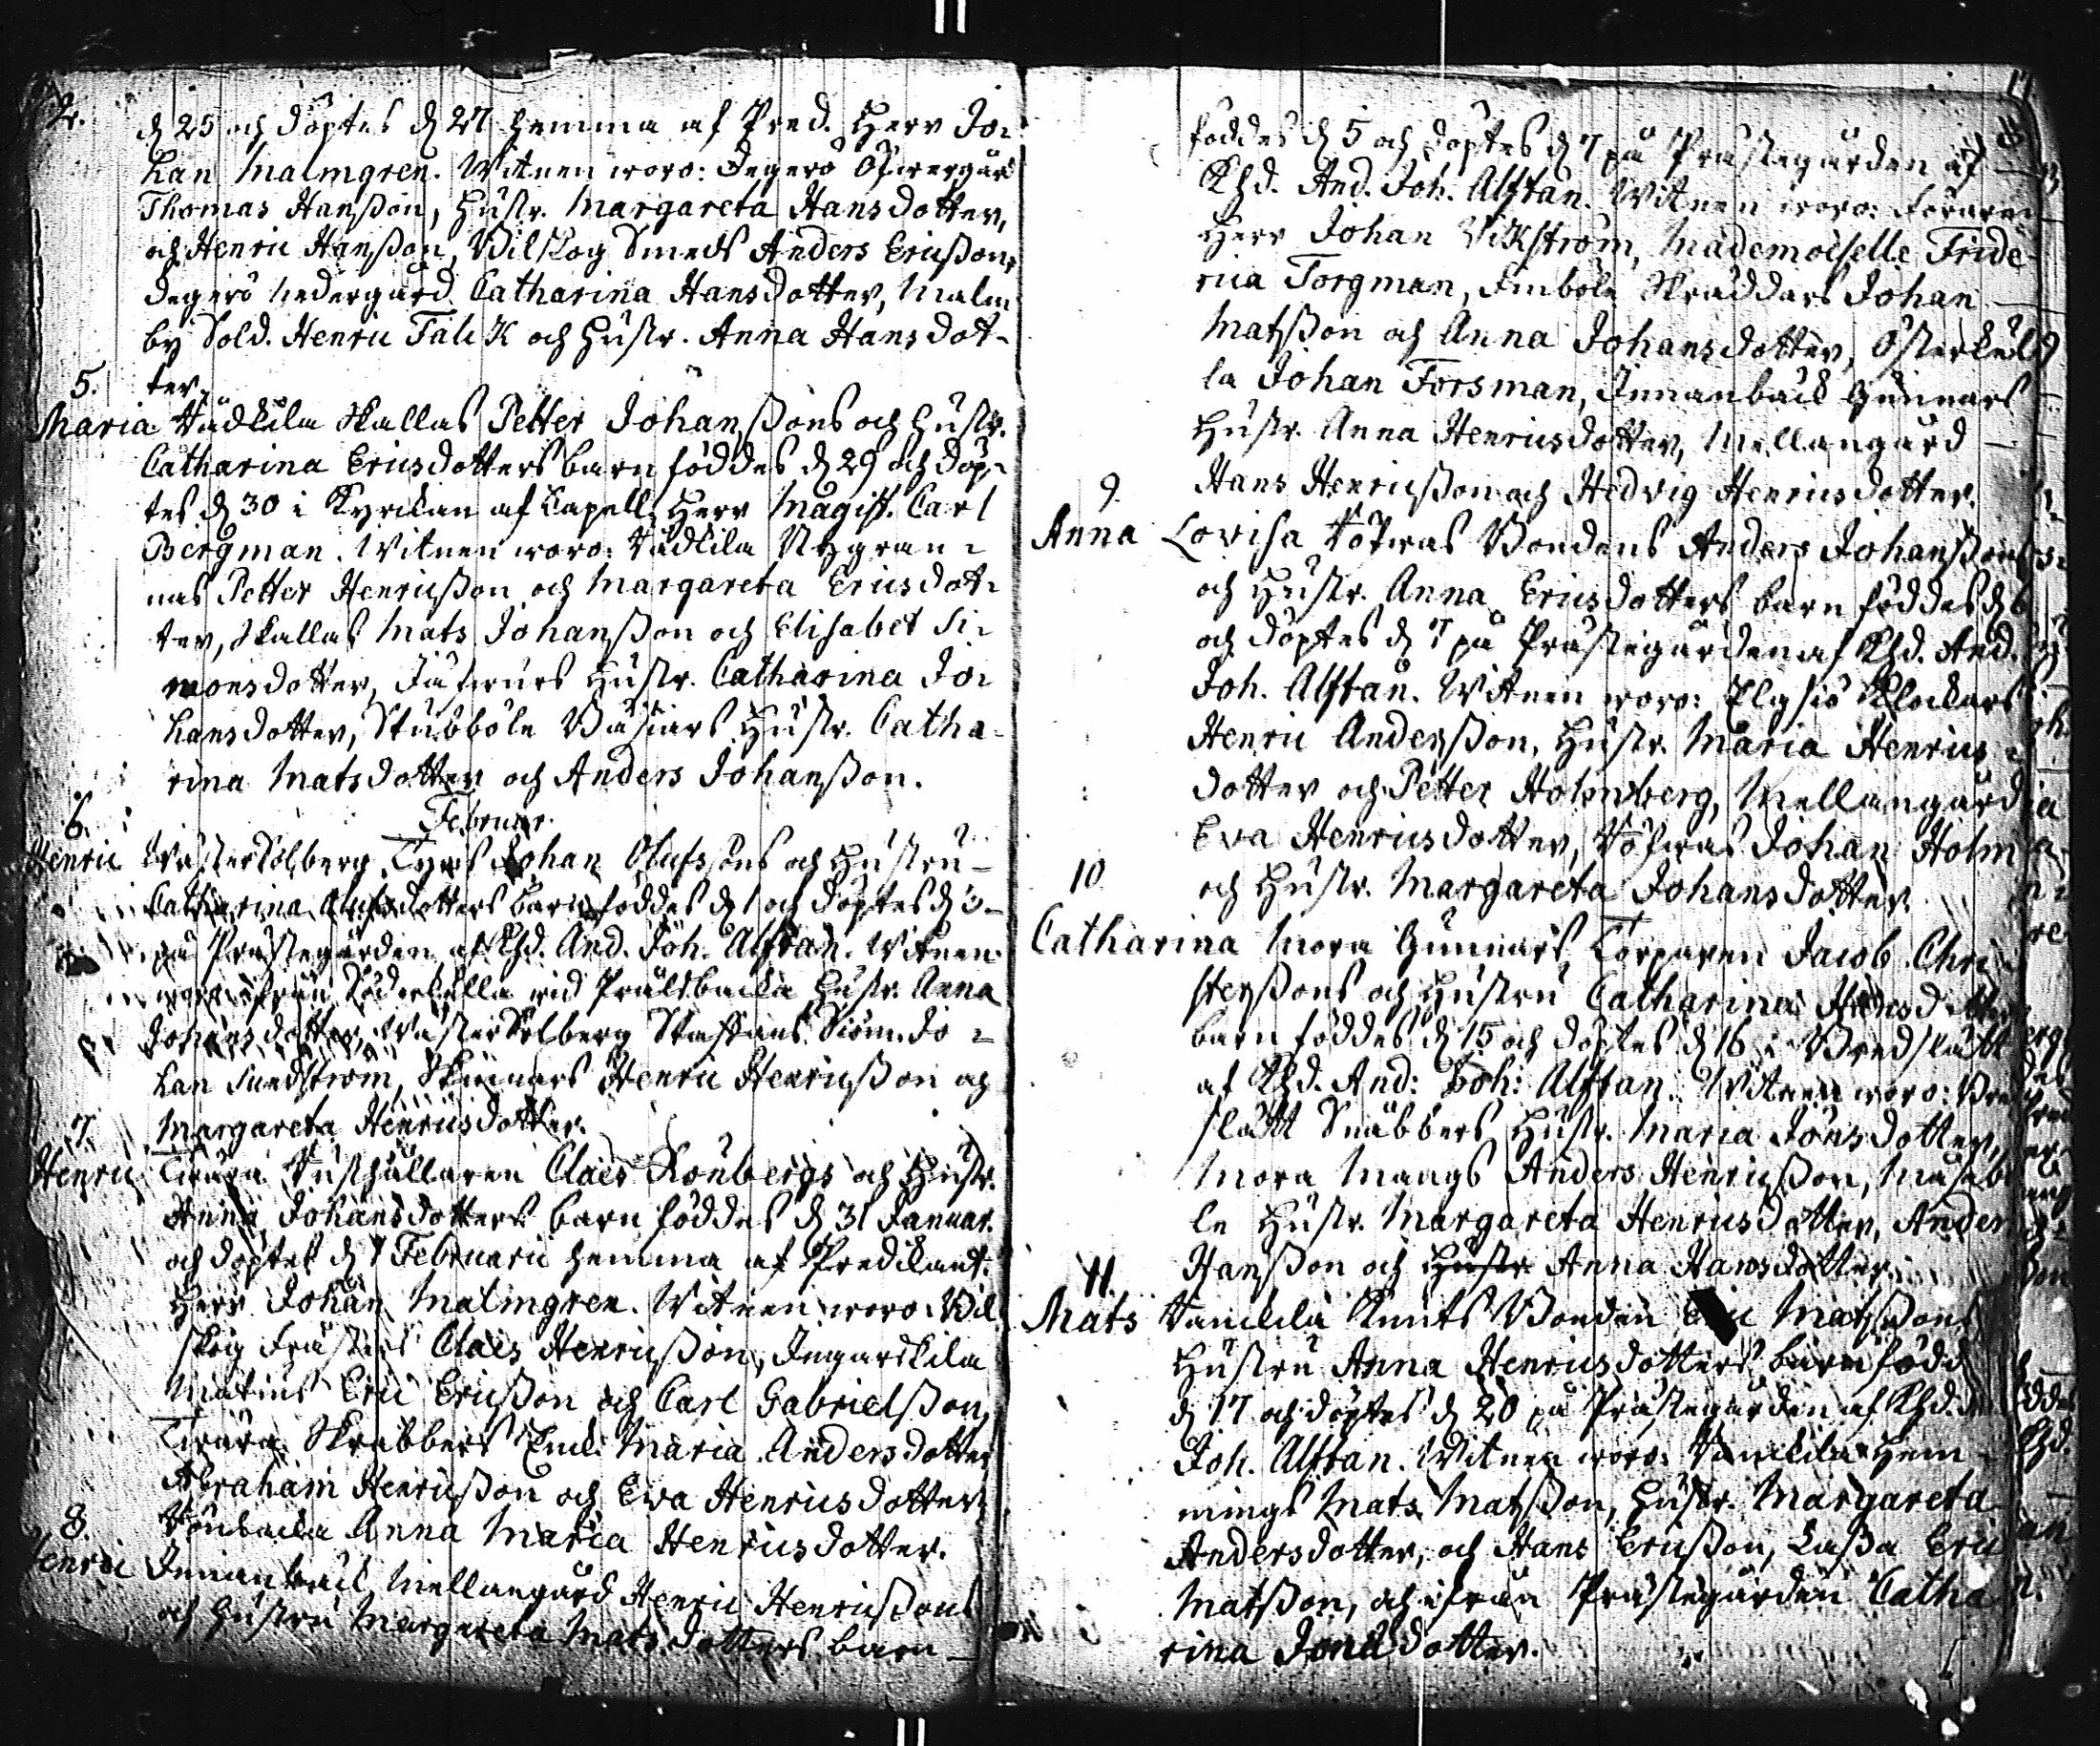 2.
d 25 och döptes d 27 hemma af Pred. Herr Jo-
han Malmgren. Witnen woro: Degerö Öfwergård
Thomas Hansson, Hustr. Margareta Hansdotter,
och Henric Hansson, Bilskog Smeds Anders Ericsson,
Degerö Nedergård Catharina Hansdotter, Malm-
by Sold. Henric Falck och Hustr. Anna Hansdot-
ter.
5.
Maria Wådkila Skallas Petter Johanssons och Hustr.
Catharina Ericsdotters barn föddes d 29 och döp-
tes d 30 i Kyrckan af Capell. Herr Magist. Carl
Bergman. Witnen woro: Wådkila Nygran-
nas Petter Henricsson och Margareta Ericsdot-
ter, Skallas Mats Johansson och Elisabet Si-
monsdotter, Hustr. Catharina Jo-
hansdotter, Stubböle Hustr. Catha-
rina Matsdotter och Anders Johansson.
Februar.
6.
Henric Wästerkolberg Johan Olufssons och Hustru
Catharina Olufsdotters barn föddes d 1 och döptes d 3
på Prästegården af Khd. And. Joh. Alftan. Witnen
woro ifrån Söderkulla wid Hustr. Anna
Johansdotter, Wästerkolberg Staffans Jo-
han Sundström, Henric Henricsson och
Margareta Henricsdotter.
7.
Henric Claes Rönbergs och Hustr.
Anna Johansdotters barn föddes d 31 Januar.
och döptes d 1 Februarii hemma af Predikant.
Herr Johan Malmgren. Witnen woro: Bil-
skog Claes Henricsson, Ingarskila
Eric Ericsson och Carl Gabrielsson,
Maria Andersdotter
Abraham Henricsson och Eva Henricsdotter,
Anna Maria Henricsdotter.
8.
Henric Innanbäck Mellangård Henric Henricssons
och Hustru Margareta Matsdotters barn
föddes d 5 och döptes d 7 på Prästegården af
Khd. And. Joh. Alftan. Witnen woro: Förare
Herr Johan Vikström, Mademoiselle Fride-
rica Torgman, Finböle Skräddars Johan
Matsson och Anna Johansdotter, Österkul-
la Johan Forsman, Innanbäck Gunnars
Hustr. Anna Henricsdotter, Mellangård
Hans Henricsson och Hedvig Henricsdotter.
9.
Anna Lovisa Bondens Anders Johanssons
och Hustr. Anna Ericsdotters barn föddes d 6
och döptes d 7 på Prästegården af Khd. And.
Joh. Alftan. Witnen woro: Elgsiö Klockars
Henric Andersson, Hustr. Maria Henrics-
dotter och Petter Holmberg, Mellangård
Eva Henricsdotter, Johan Holm
och Hustr. Margareta Johansdotter.
10
Catharina Mora Gunnars Torparen Jacob Chri-
sterssons och Hustru Catharina Hansdotters
barn föddes d 15 och döptes d 16 i Bredslätt
af Khd. And: Joh: Alftan. Witnen woro: Bred-
slätt Snäbbers Hustr. Maria Jönsdotter,
Mora Mangs Anders Henricsson, Masabö-
le Hustr. Margareta Henricsdotter, Anders
Hansson och Hustr. Anna Hansdotter.
11.
Mats Knuts Bonden Eric Matssons
Hustru Anna Henricsdotters barn född
d 17 och döptes d 20 på Prästegården af Khd.
Joh. Alftan. Witnen woro: Hem-
mings Mats Matsson, Hustr. Margareta
Andersdotter, och Hans Ericsson, Lassa Eric
Matsson, och ifrån Prästegården Catha-
rina Jonadotter.